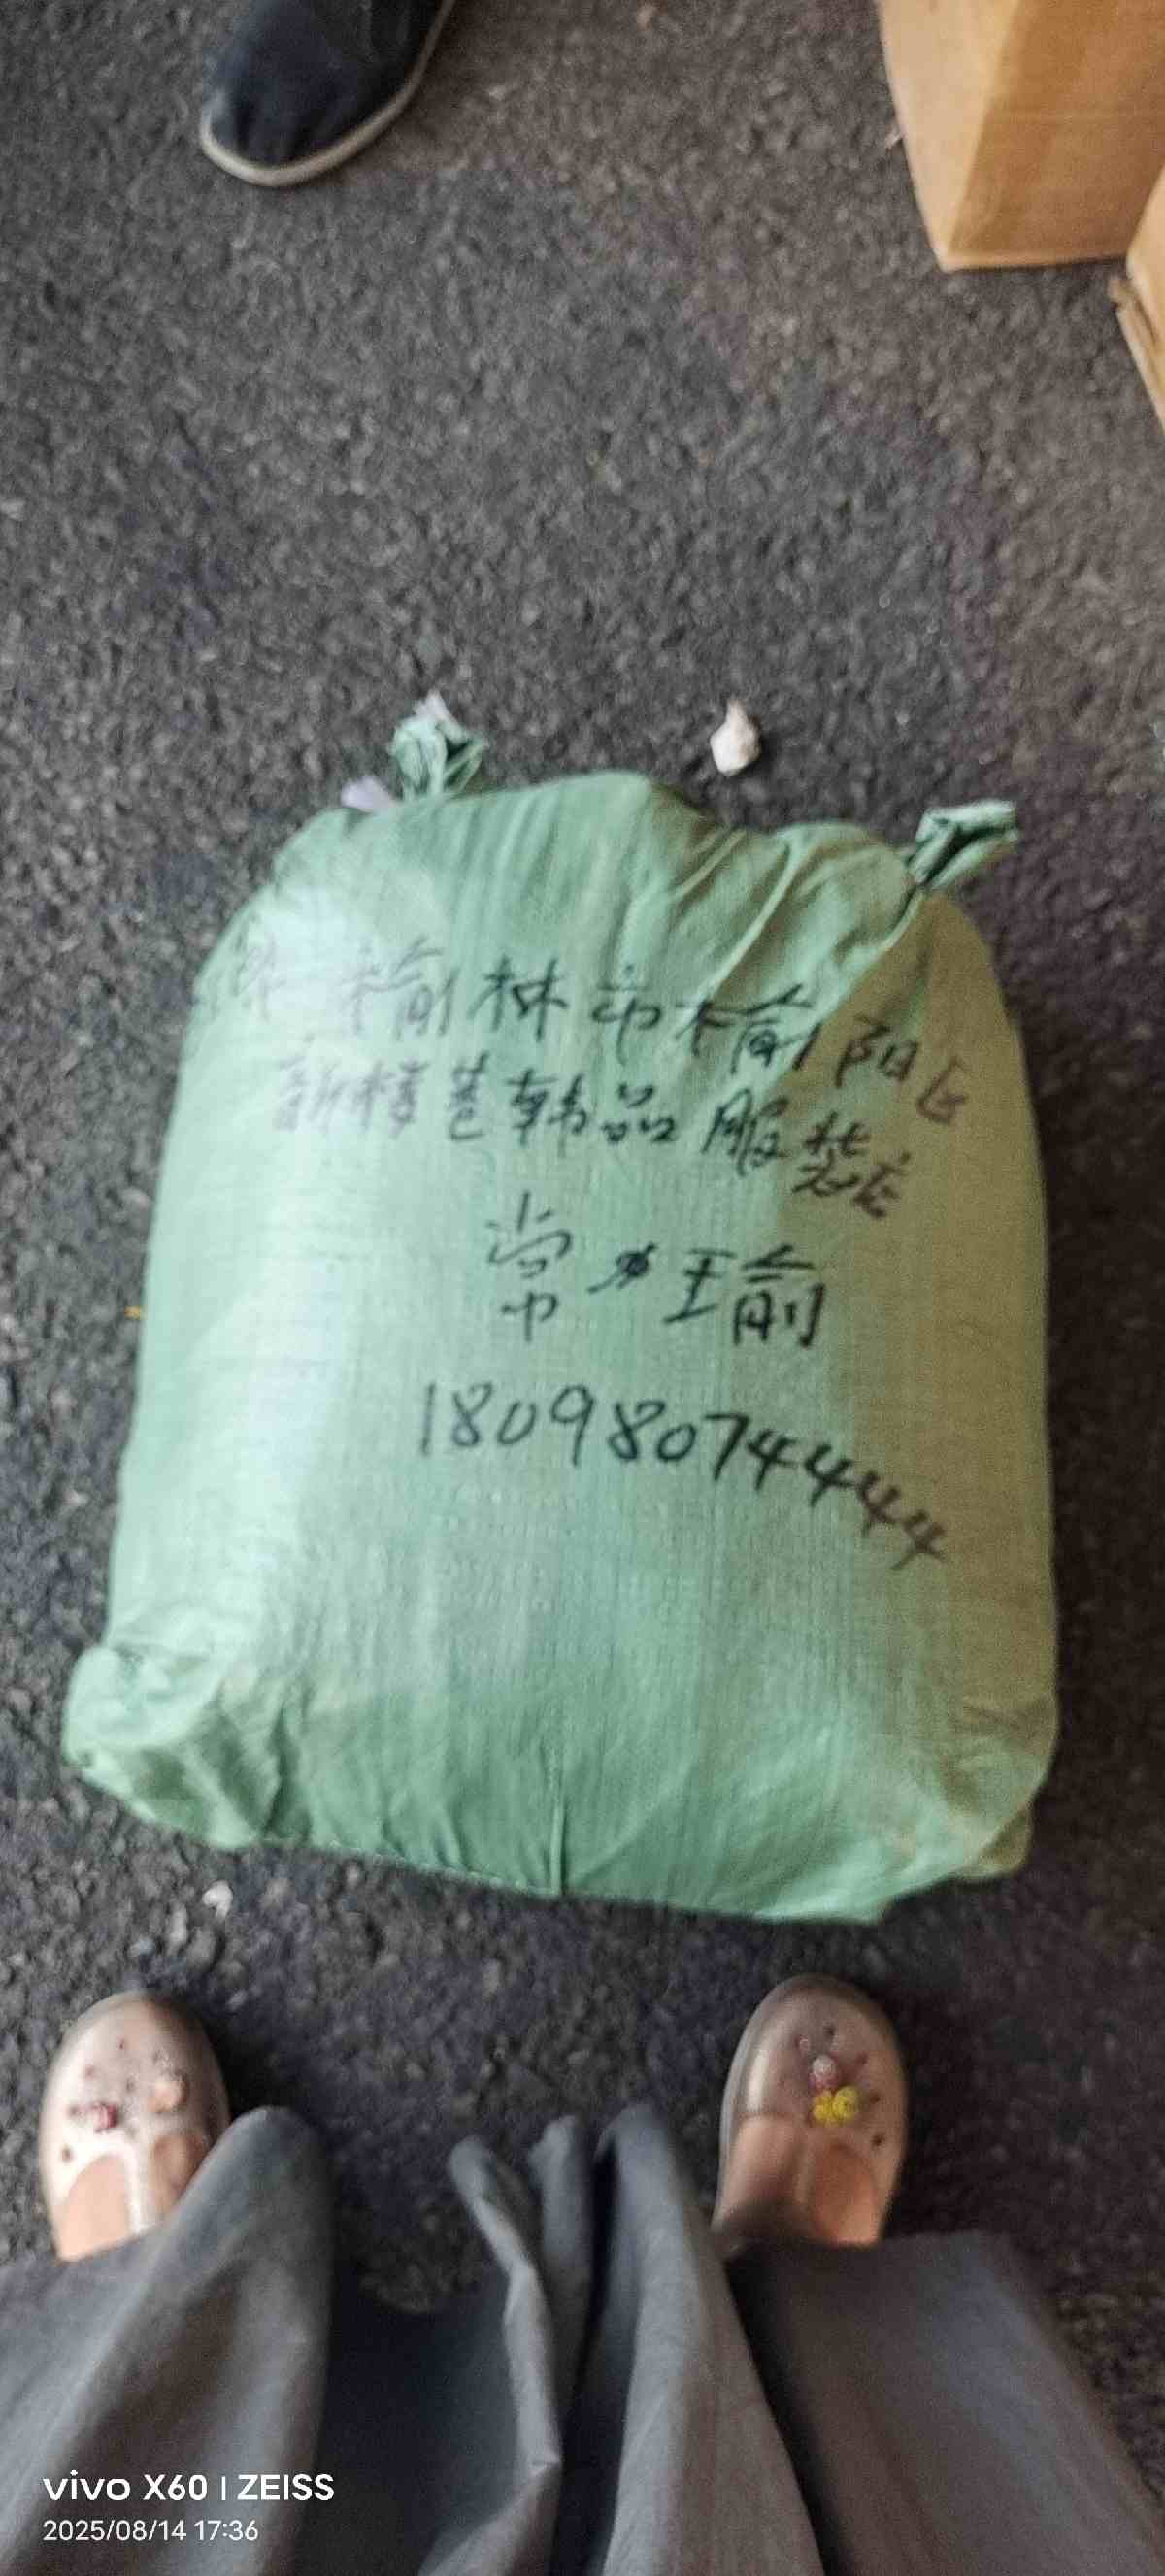 榆林市榆阳区
新楼巷韩品服装店
常瑜
18098074444
vivo X60 | ZEISS
2025/08/14 17:36